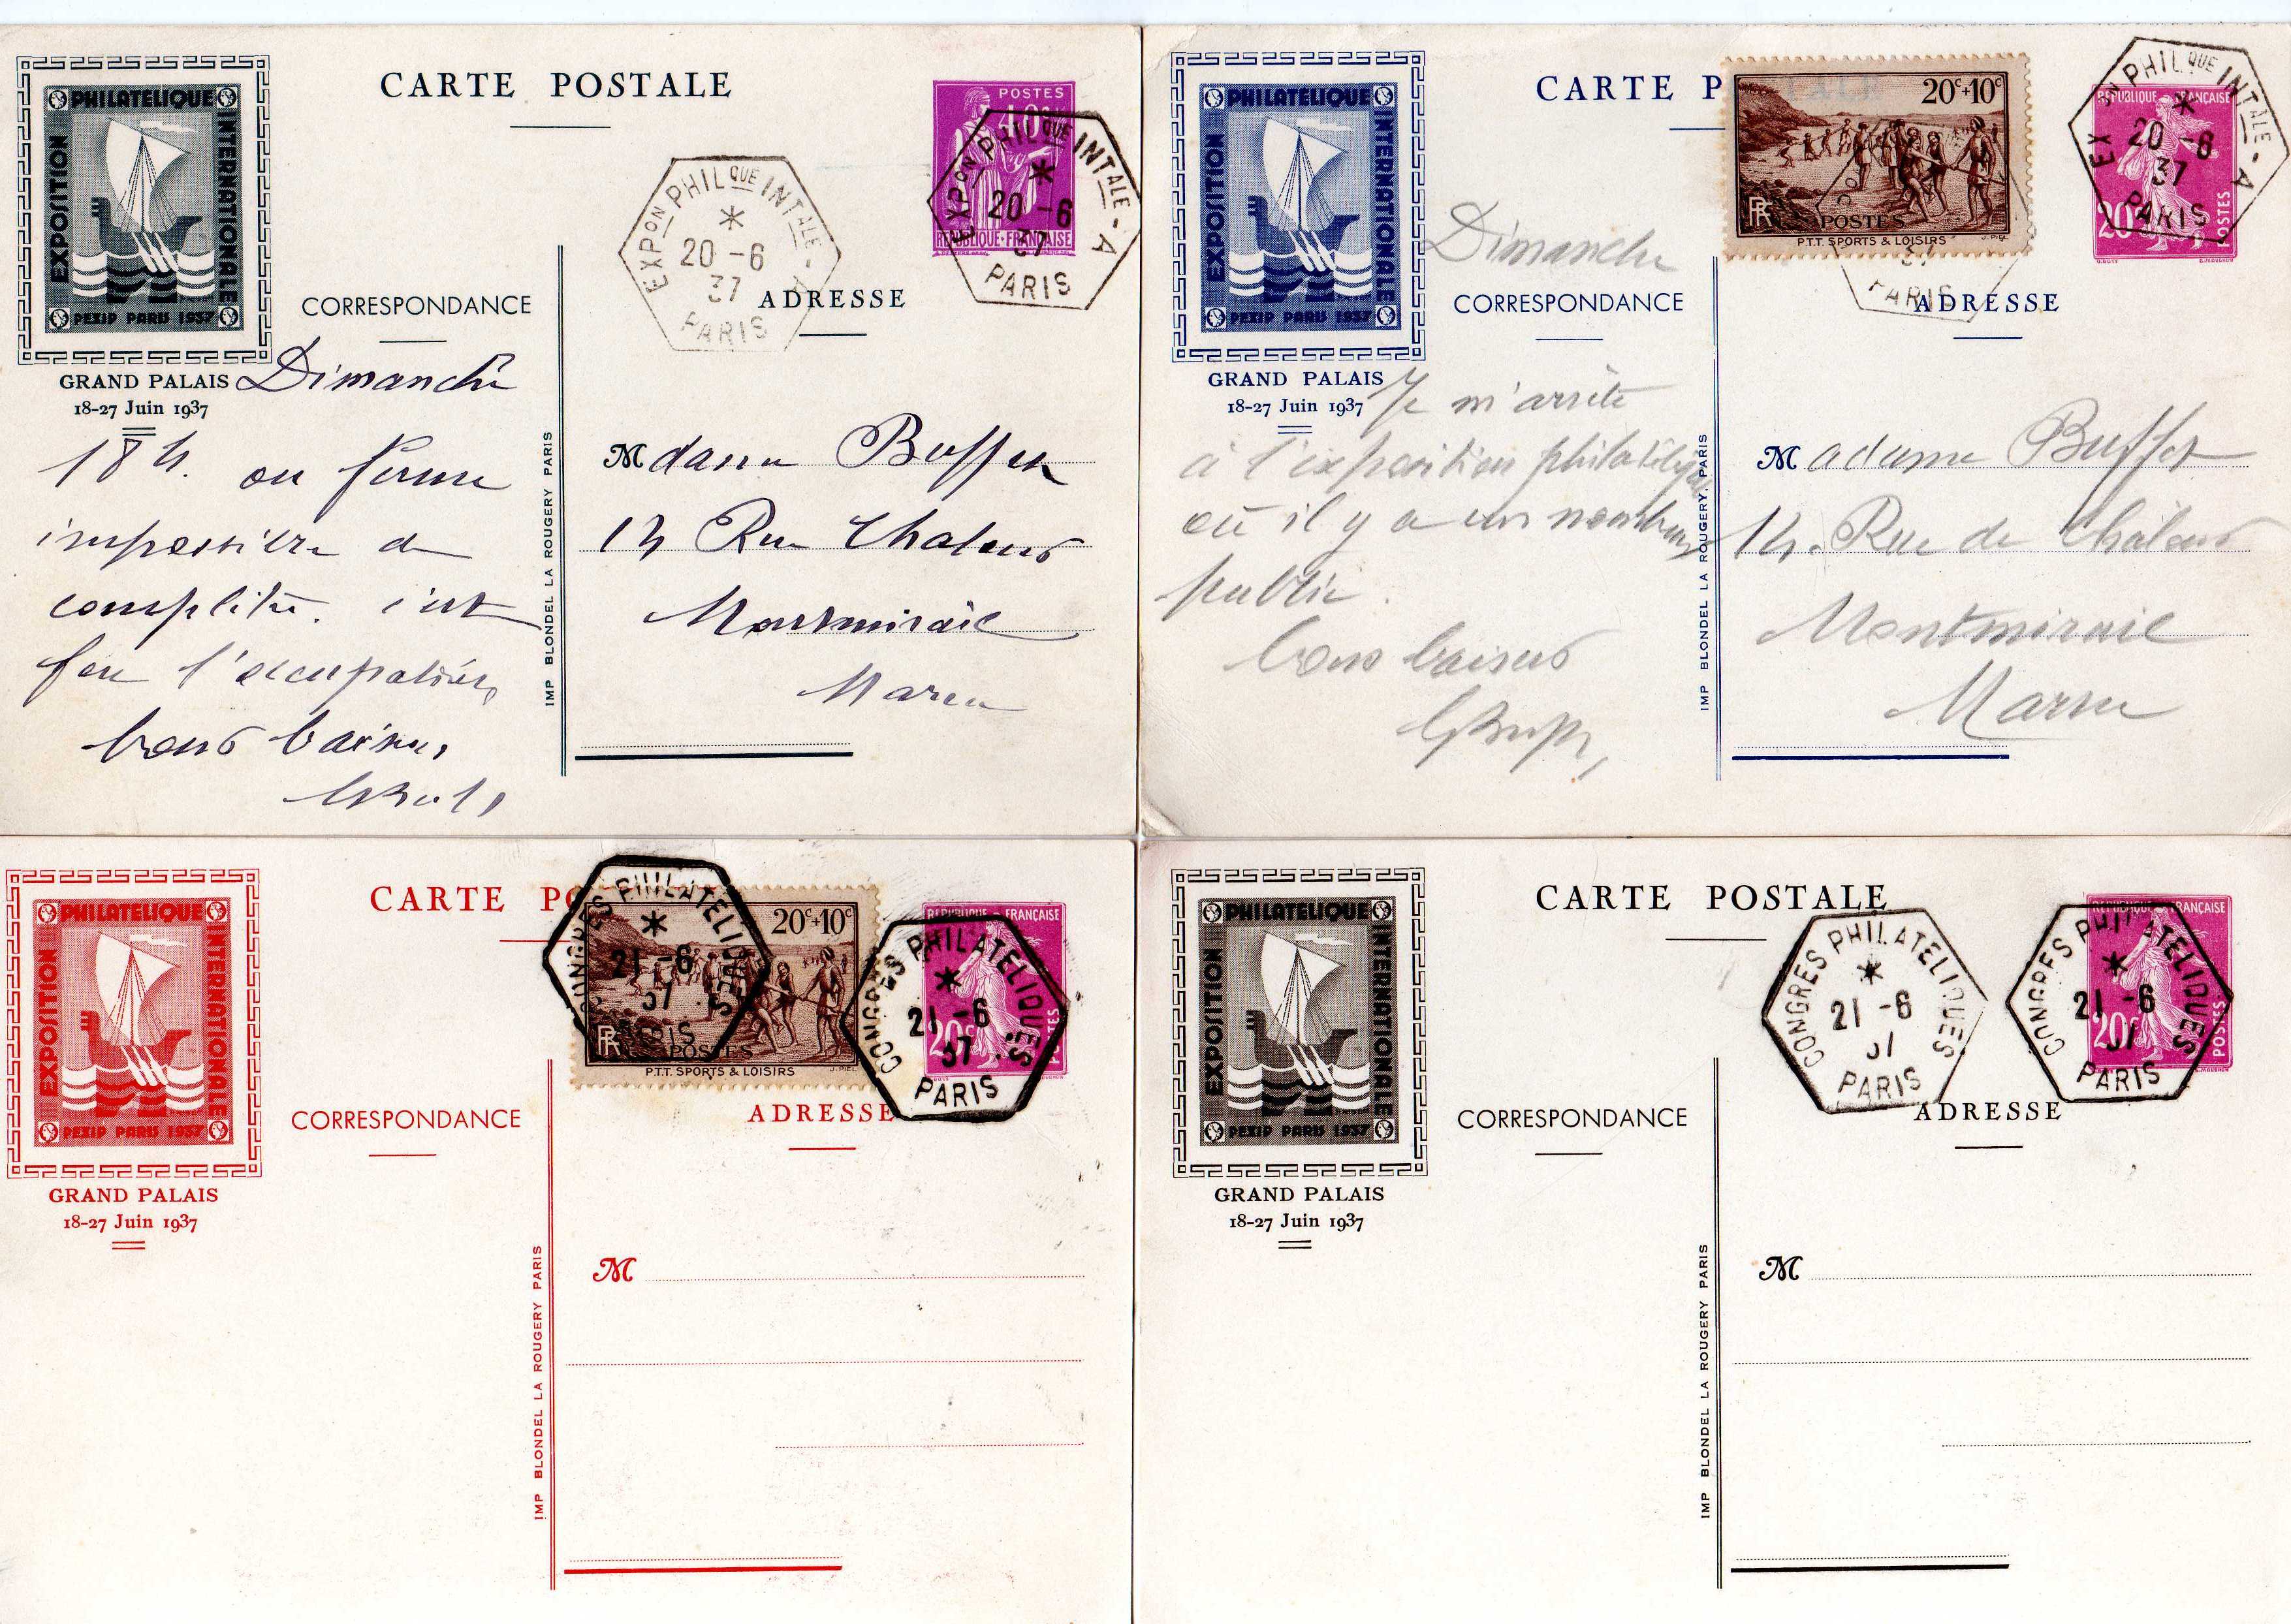 CARTE POSTALE
PHILATELIQUE
EXPOSITION
INTERNATIONALE
PEXIP PARIS 1937
GRAND PALAIS
18-27 Juin 1937
POSTES
REPUBLIQUE • FRANÇAISE
EXPON PHILQUE INTALE - A
20 -6
37
PARIS
EXPON PHILQUE INTALE - A
20 -6
37
PARIS
CORRESPONDANCE
ADRESSE
Dimanche
18 h. on ferme
impossible de
c'est
l'occupation
bons baisers
IMP BLONDEL LA ROUGERY PARIS
Madame Buffet
Rue Chalons
Montmirail
Marne
CARTE P
PHILATELIQUE
EXPOSITION
INTERNATIONALE
PEXIP PARIS 1937
GRAND PALAIS
18-27 Juin 1937
20c+10c
RF
POSTES
P.T.T. SPORTS & LOISIRS
J. PIEL
REPUBLIQUE FRANÇAISE
20c
POSTES
EXON PHILQUE INTALE - A
20 -6
37
PARIS
37
PARIS
Dimanche
CORRESPONDANCE
ADRESSE
Je m'arrête
à l'exposition philatélique
où il y a un nombreux
public.
bons baisers
IMP BLONDEL LA ROUGERY. PARIS
Madame Buffet
Rue de Châlons
Montmirail
Marne
CARTE PO
PHILATELIQUE
EXPOSITION
INTERNATIONALE
PEXIP PARIS 1937
GRAND PALAIS
18-27 Juin 1937
20c+10c
RF
POSTES
P.T.T. SPORTS & LOISIRS
J. PIEL
CONGRES PHILATELIQUES
21 -6
37
PARIS
REPUBLIQUE FRANÇAISE
20c
POSTES
CONGRES PHILATELIQUES
21 -6
37
PARIS
CORRESPONDANCE
ADRESSE
IMP BLONDEL LA ROUGERY PARIS
M
CARTE POSTALE
PHILATELIQUE
EXPOSITION
INTERNATIONALE
PEXIP PARIS 1937
GRAND PALAIS
18-27 Juin 1937
CONGRES PHILATELIQUES
21 -6
37
PARIS
REPUBLIQUE FRANÇAISE
20c
POSTES
CONGRES PHILATELIQUES
21 -6
37
PARIS
CORRESPONDANCE
ADRESSE
IMP BLONDEL LA ROUGERY PARIS
M